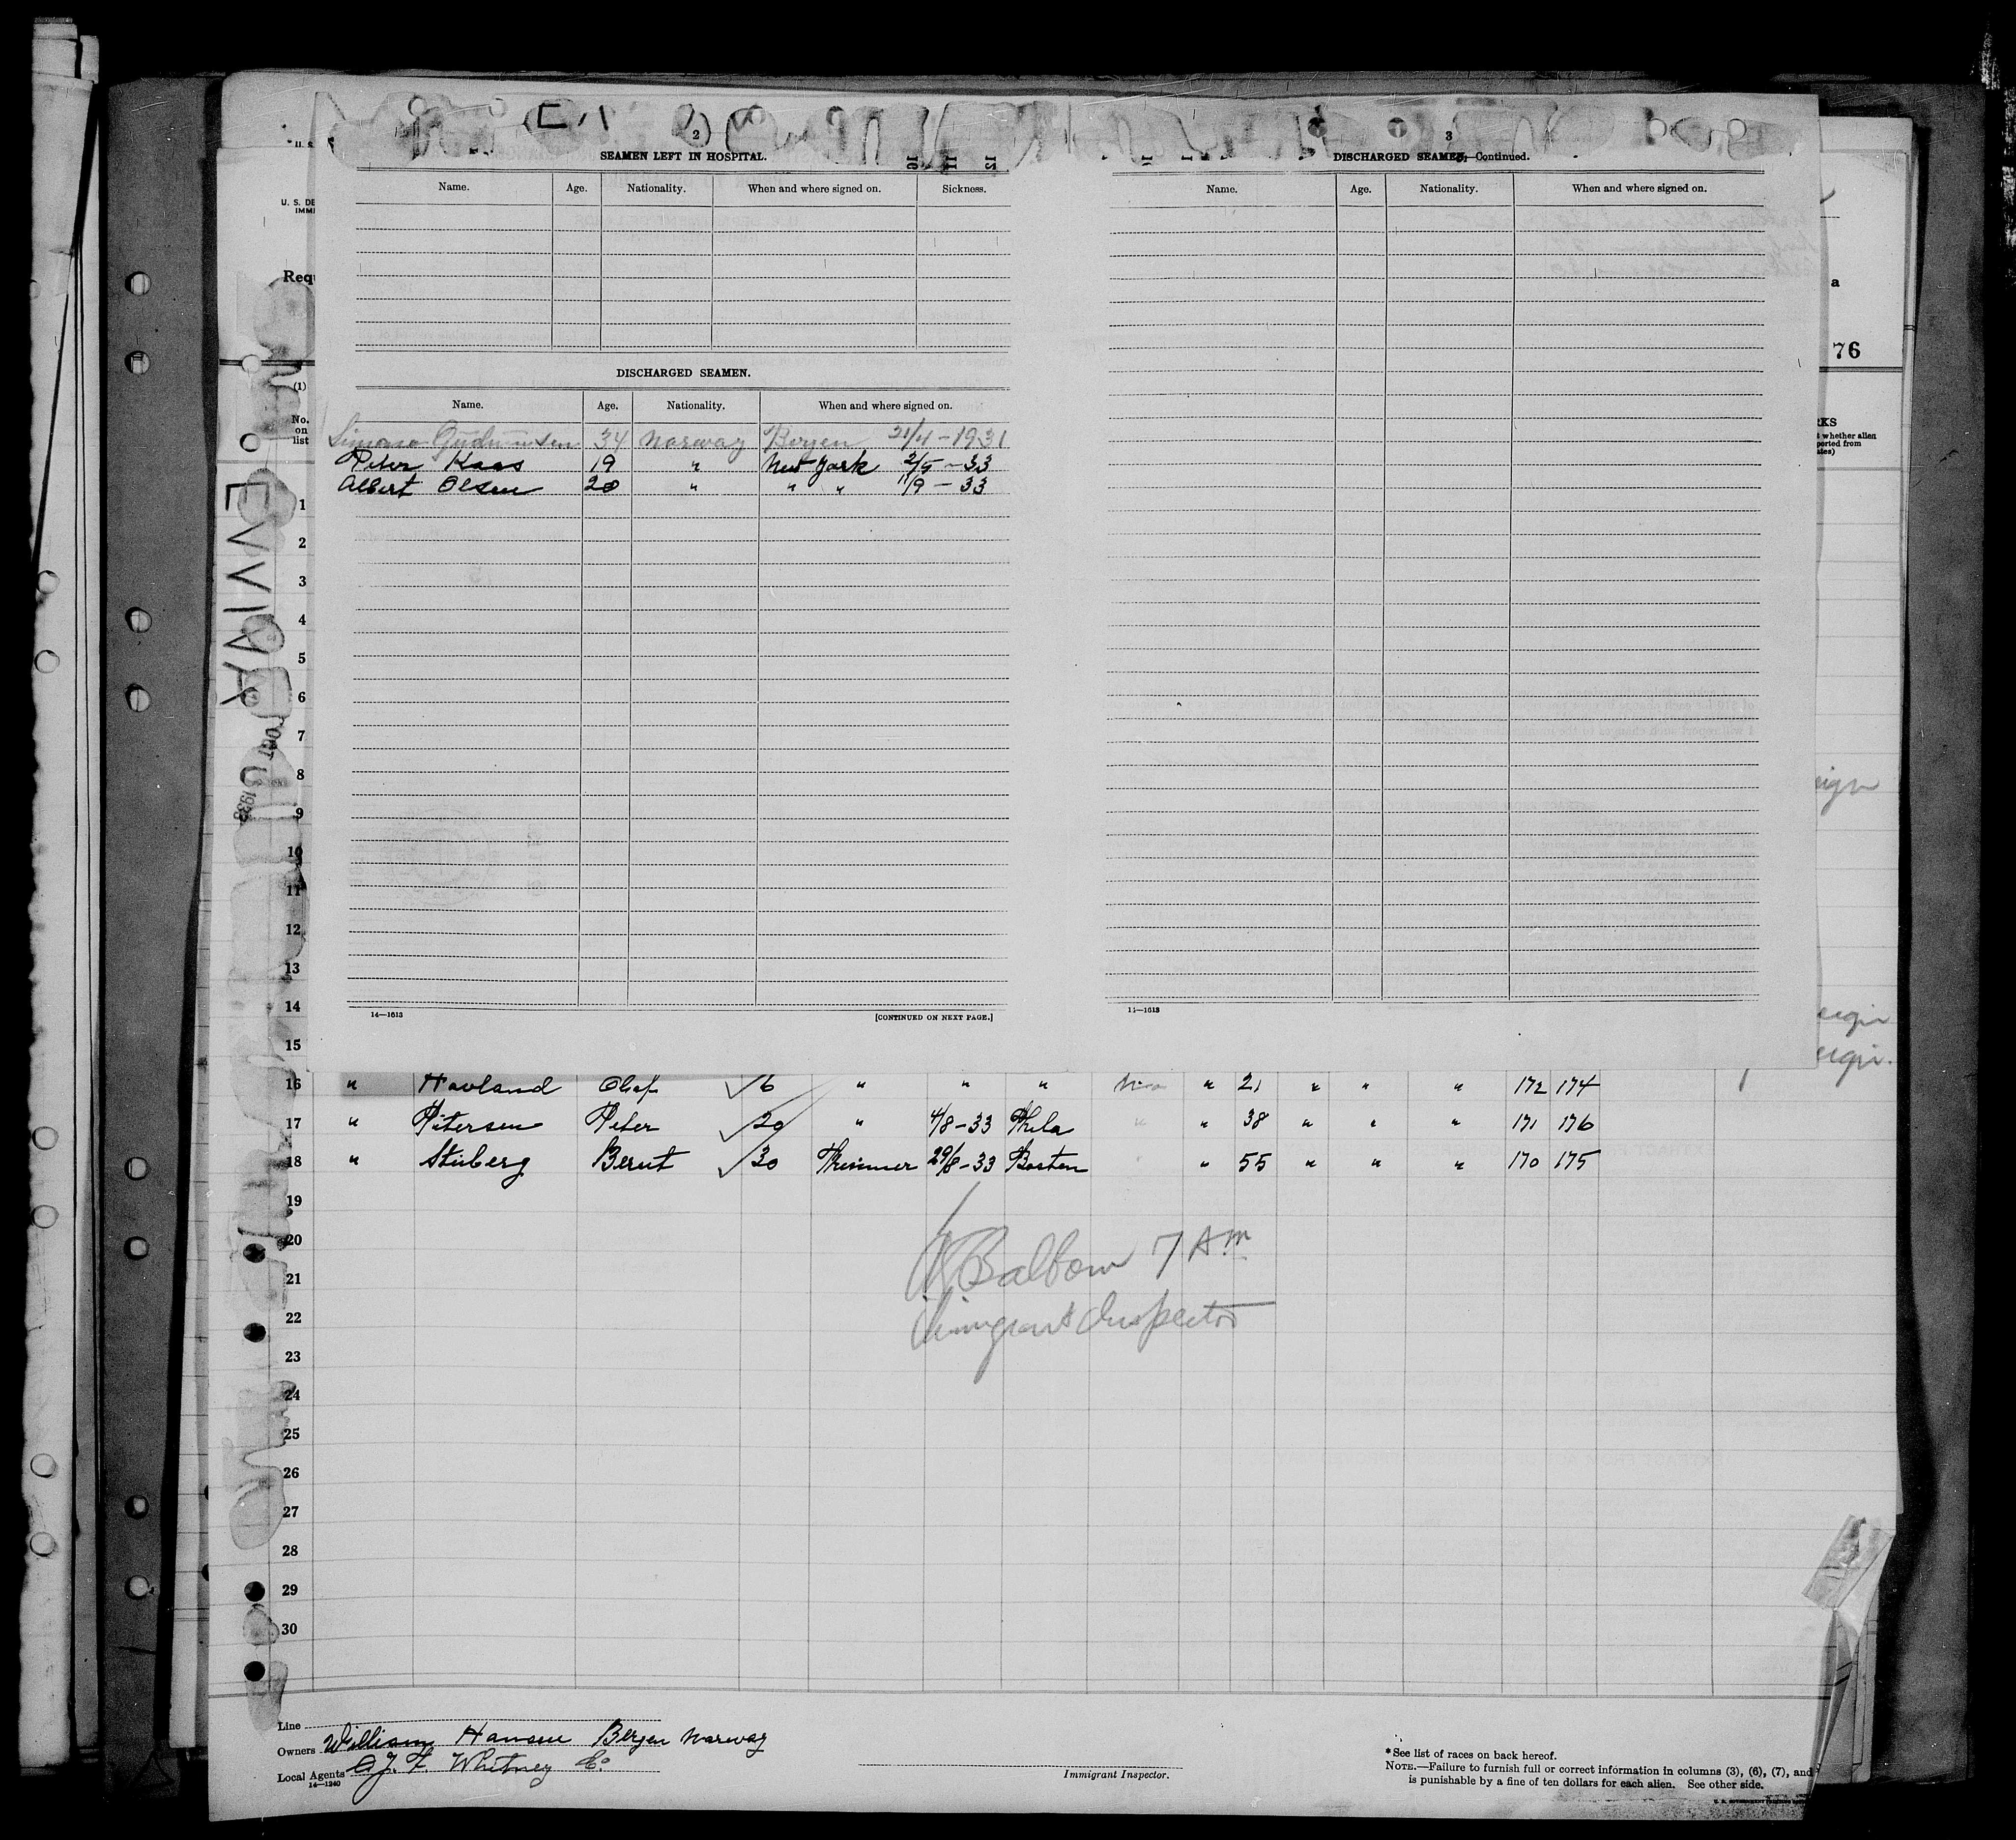 2
SEAMEN LEFT IN HOSPITAL.
Name. Age. Nationality. When and where signed on. Sickness.
DISCHARGED SEAMEN.
Name. Age. Nationality. When and where signed on.
34 Norway Bergen 21/4-1931
Peter Kaas 19 " New York 2/5-33
Albert Olsen 20 " " " 11/9-33
14—1613 [CONTINUED ON NEXT PAGE.]
3
DISCHARGED SEAMEN—Continued.
Name. Age. Nationality. When and where signed on.
14—1613
U. S. DE
IMMI
Requ
a
76
(1)
No.
on
list
RKS
t whether alien
ported from
tes)
EVVIVA
OCT 1933
1
2
3
4
5
6
7
8
9
10
11
12
13
14
15
eign
eign
eign.
16 " Havland Olaf 6 " " " No " 21 " " " 172 174
17 " Petersen Peter 20 " 4/8-33 Phila " " 38 " " " 171 176
18 " Stuberg Berent 30 Trimmer 29/8-33 Boston " 55 " " " 170 175
19
20
21
22
23
24
25
26
27
28
29
30
Balbom 7 AM
Immigrant Inspector
Line
Owners William Hansen Bergen Norway
Local Agents J. F. Whitney Co
14—1240
Immigrant Inspector.
*See list of races on back hereof.
NOTE.—Failure to furnish full or correct information in columns (3), (6), (7), and
is punishable by a fine of ten dollars for each alien. See other side.